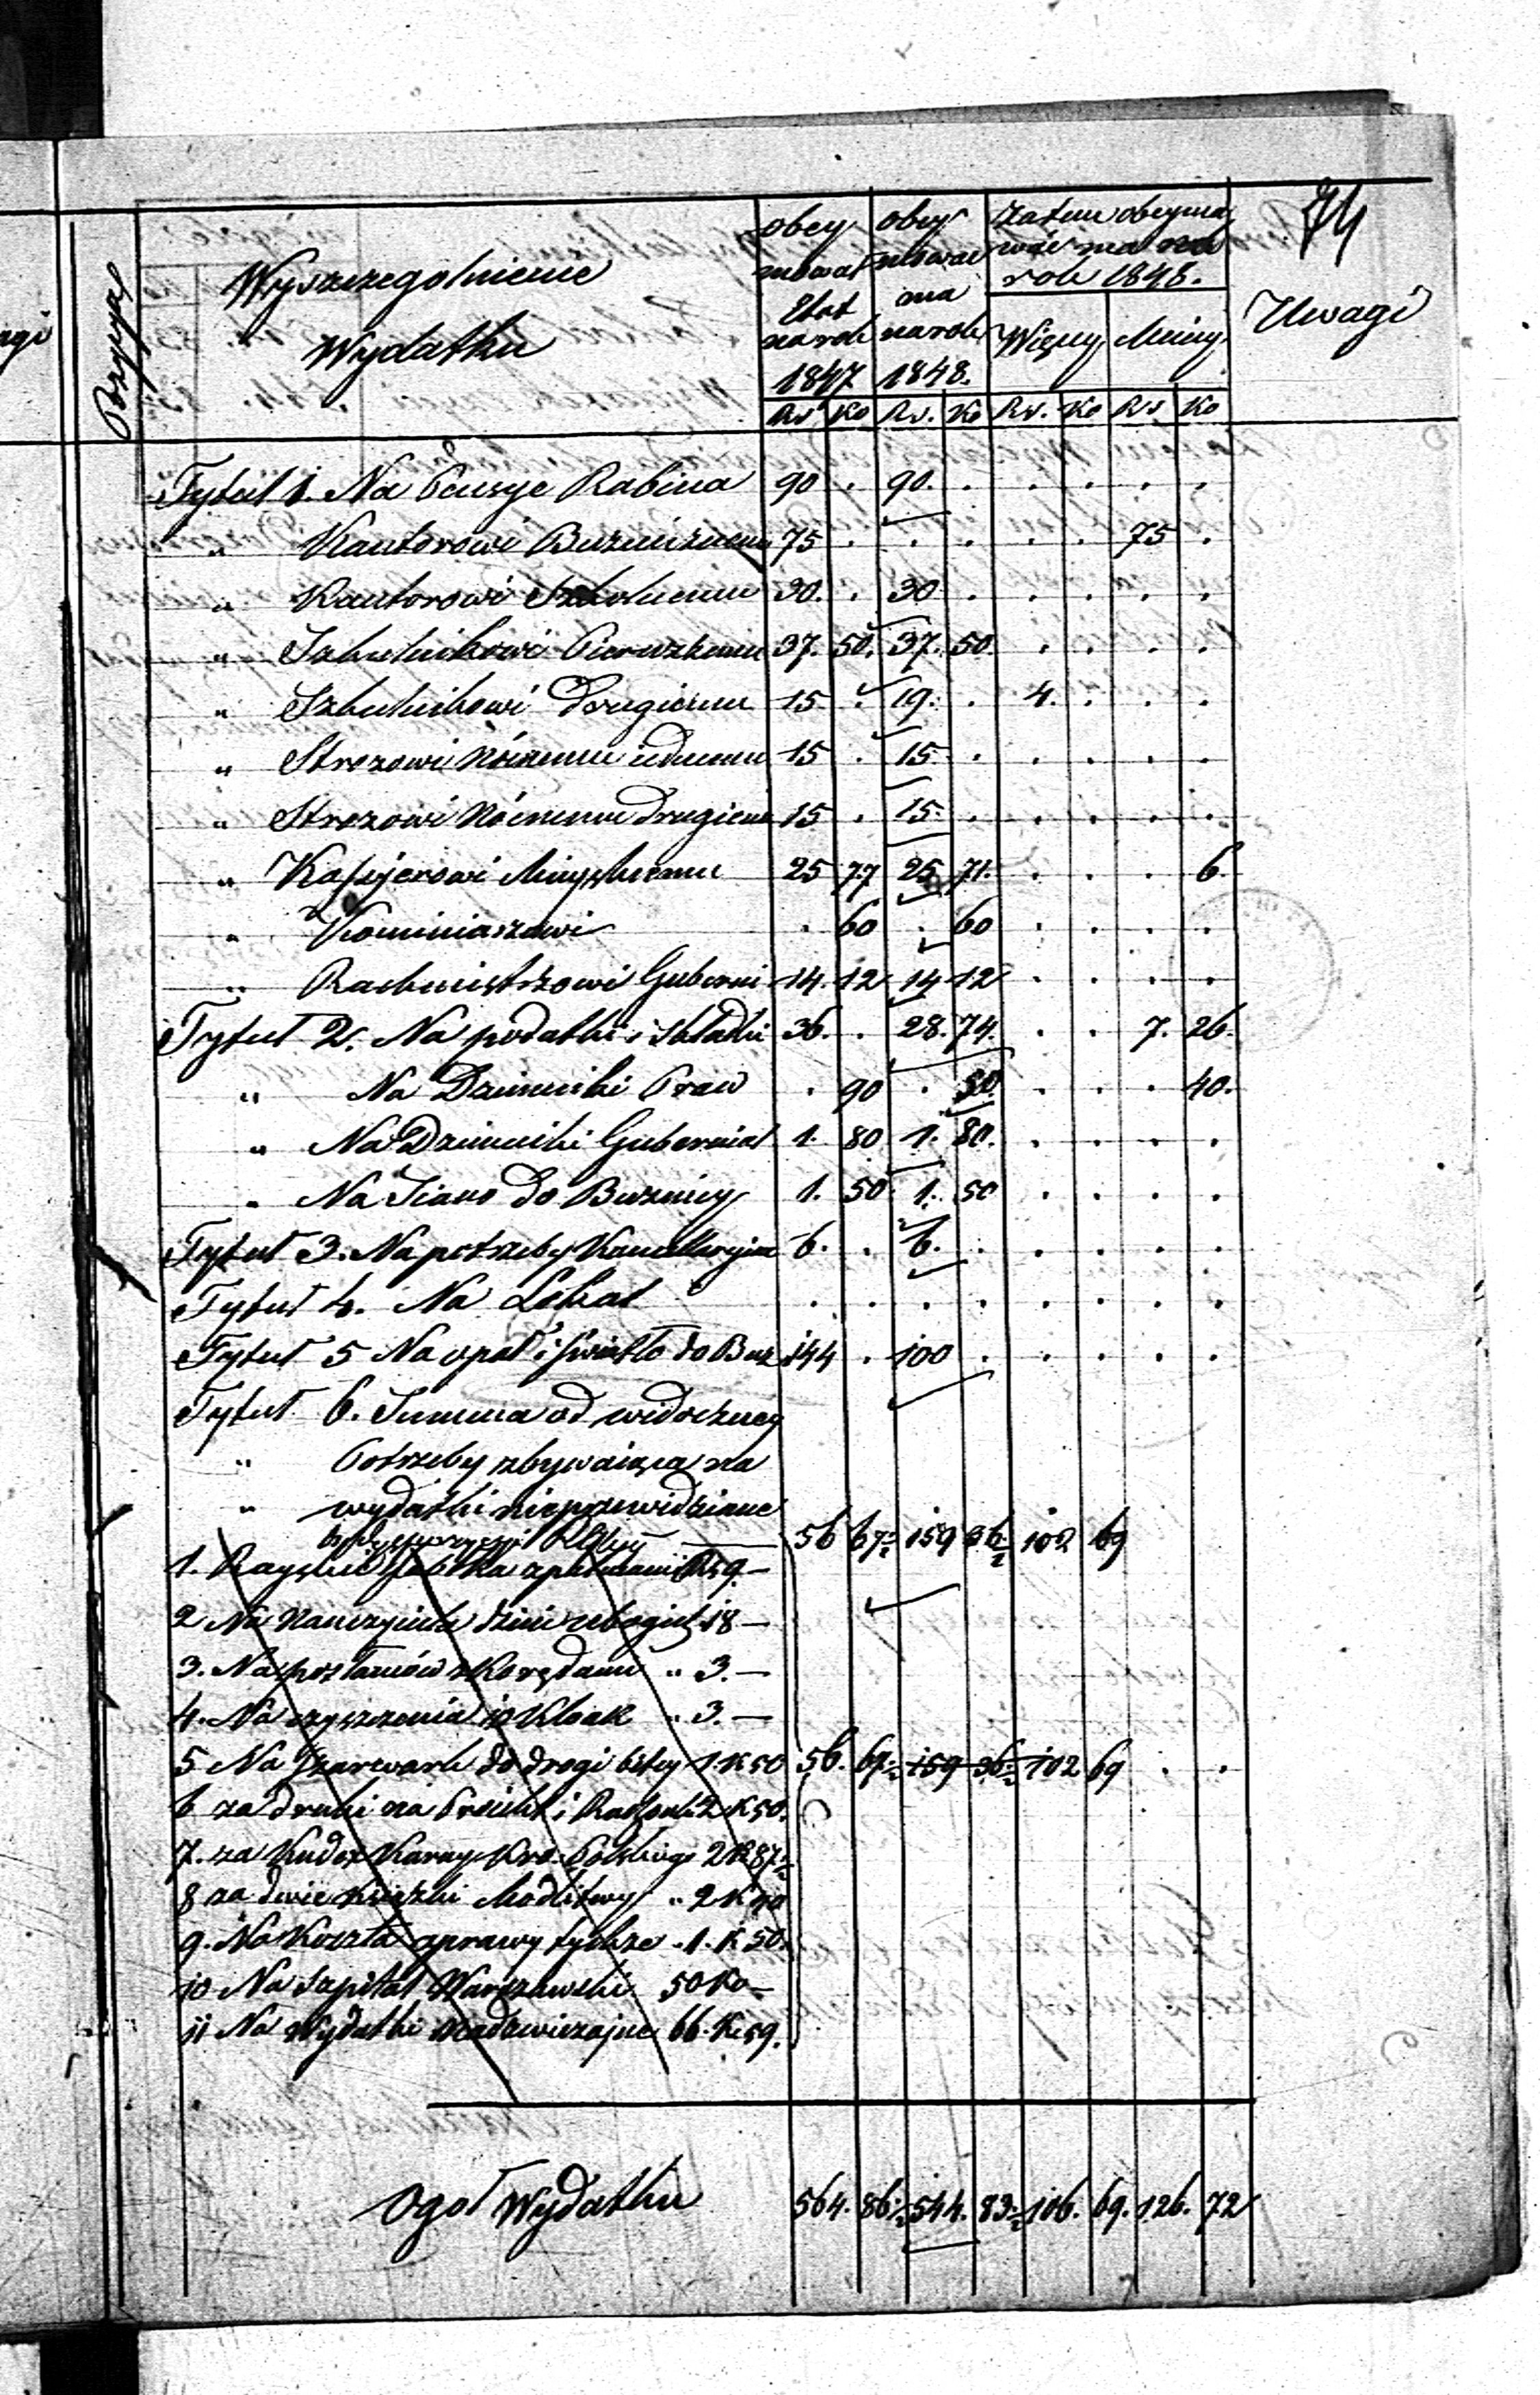 74
Pozycya
Wyszczegolnienie
Wydatku
obey
mował
Etat
na rok
1847
obey
mować
ma
na rok
1848.
Zatem obeyma
wać ma na
rok 1848.
Więcey Mniey
Uwagi
Rs Ko Rs. Ko Rs. Ko Rs Ko
Tytuł 1. Na Pensye Rabina 90 . 90. . . . . .
" Kantorowi Buzniznemu 75 . . . . . 75 .
" Kantorowi Szkolnemu 30. . 30 . . . . .
" Szkulnikowi Pierwszemu 37. 50. 37. 50. . . . .
" Szkulnikowi Drugiemu 15 . 19. . 4. . . .
" Strozowi Nócnemu iednemu 15 . 15 . . . . .
" Strozowi Nócnemu Drugiemu 15 . 15. . . . . .
" Kassyerowi Mieyskiemu 25 77 25 71. . . . 6.
" Kominiarzowi . 60 . 60 . . . .
" Rachmistrzowi Guberni 14. 12 14 12 . . . .
Tytuł 2. Na podatki i składki 36. . 28. 74. . . 7. 26.
" Na Dzienniki Praw . 90 . 50. . . . 40.
" Na Dzienniki Gubernial 1. 80 1. 80. . . . .
" Na Siano do Buznicy 1. 50 1. 50 . . . .
Tytuł 3. Na potrzeby Kancellaryine 6. . 6. . . . . .
Tytuł 4. Na Lokal . . . . . . . .
Tytuł 5 Na opał i światło do Buz 144 . 100 . . . . .
Tytuł 6. Summa od widoczney
" Potrzeby zbywaiąca na
" wydatki nieprzewidziane
56 67½ 159 36½ 102 69
1. Rayskie Jabłka z palmami Rs 9. —
2 Na Nauczyciela dzieci ubogich 18 —
3. Na posłańców z Korędami " 3. —
4. Na czyszczenia Kloak " 3. —
5 Na Szarwark do drogi bitey 1. K 50 56. 67½ 159 36½ 102 69 . .
6 za druki na Preliki i Rachunk 2 K 50.
7. za Kudex Karny Kró. Polskiego 2 K 87½
8 za dwie Książki Modlitwy " 2 K 40
9. Na Koszta oprawy tychże " 1. K 50.
10 Na Szpital Warszawski 50 Ko —
11 Na Wydatki Nadzwiczajne 66. K 59.
Ogoł Wydatku 564. 86½ 544. 83½ 106. 69. 126. 72